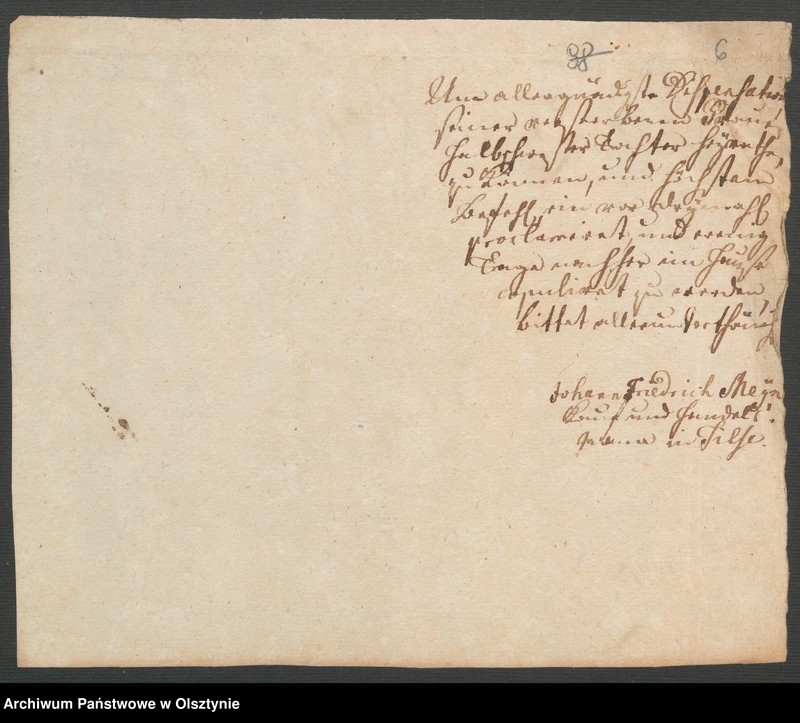 38 6
Um allergnädigste Dispensation
seiner verstorbenen Frauen
Halbschwester Tochter heyrathen
zu können, und höchstem
Befehl, ein vor dreymahl
proclamiret, und wenig
Tage nachher im Hause
copuliret zu werden,
bittet allerunterthänig
Johann Friedrich Meyn
Kauf und Handels-
mann in Tilse.
Archiwum Państwowe w Olsztynie